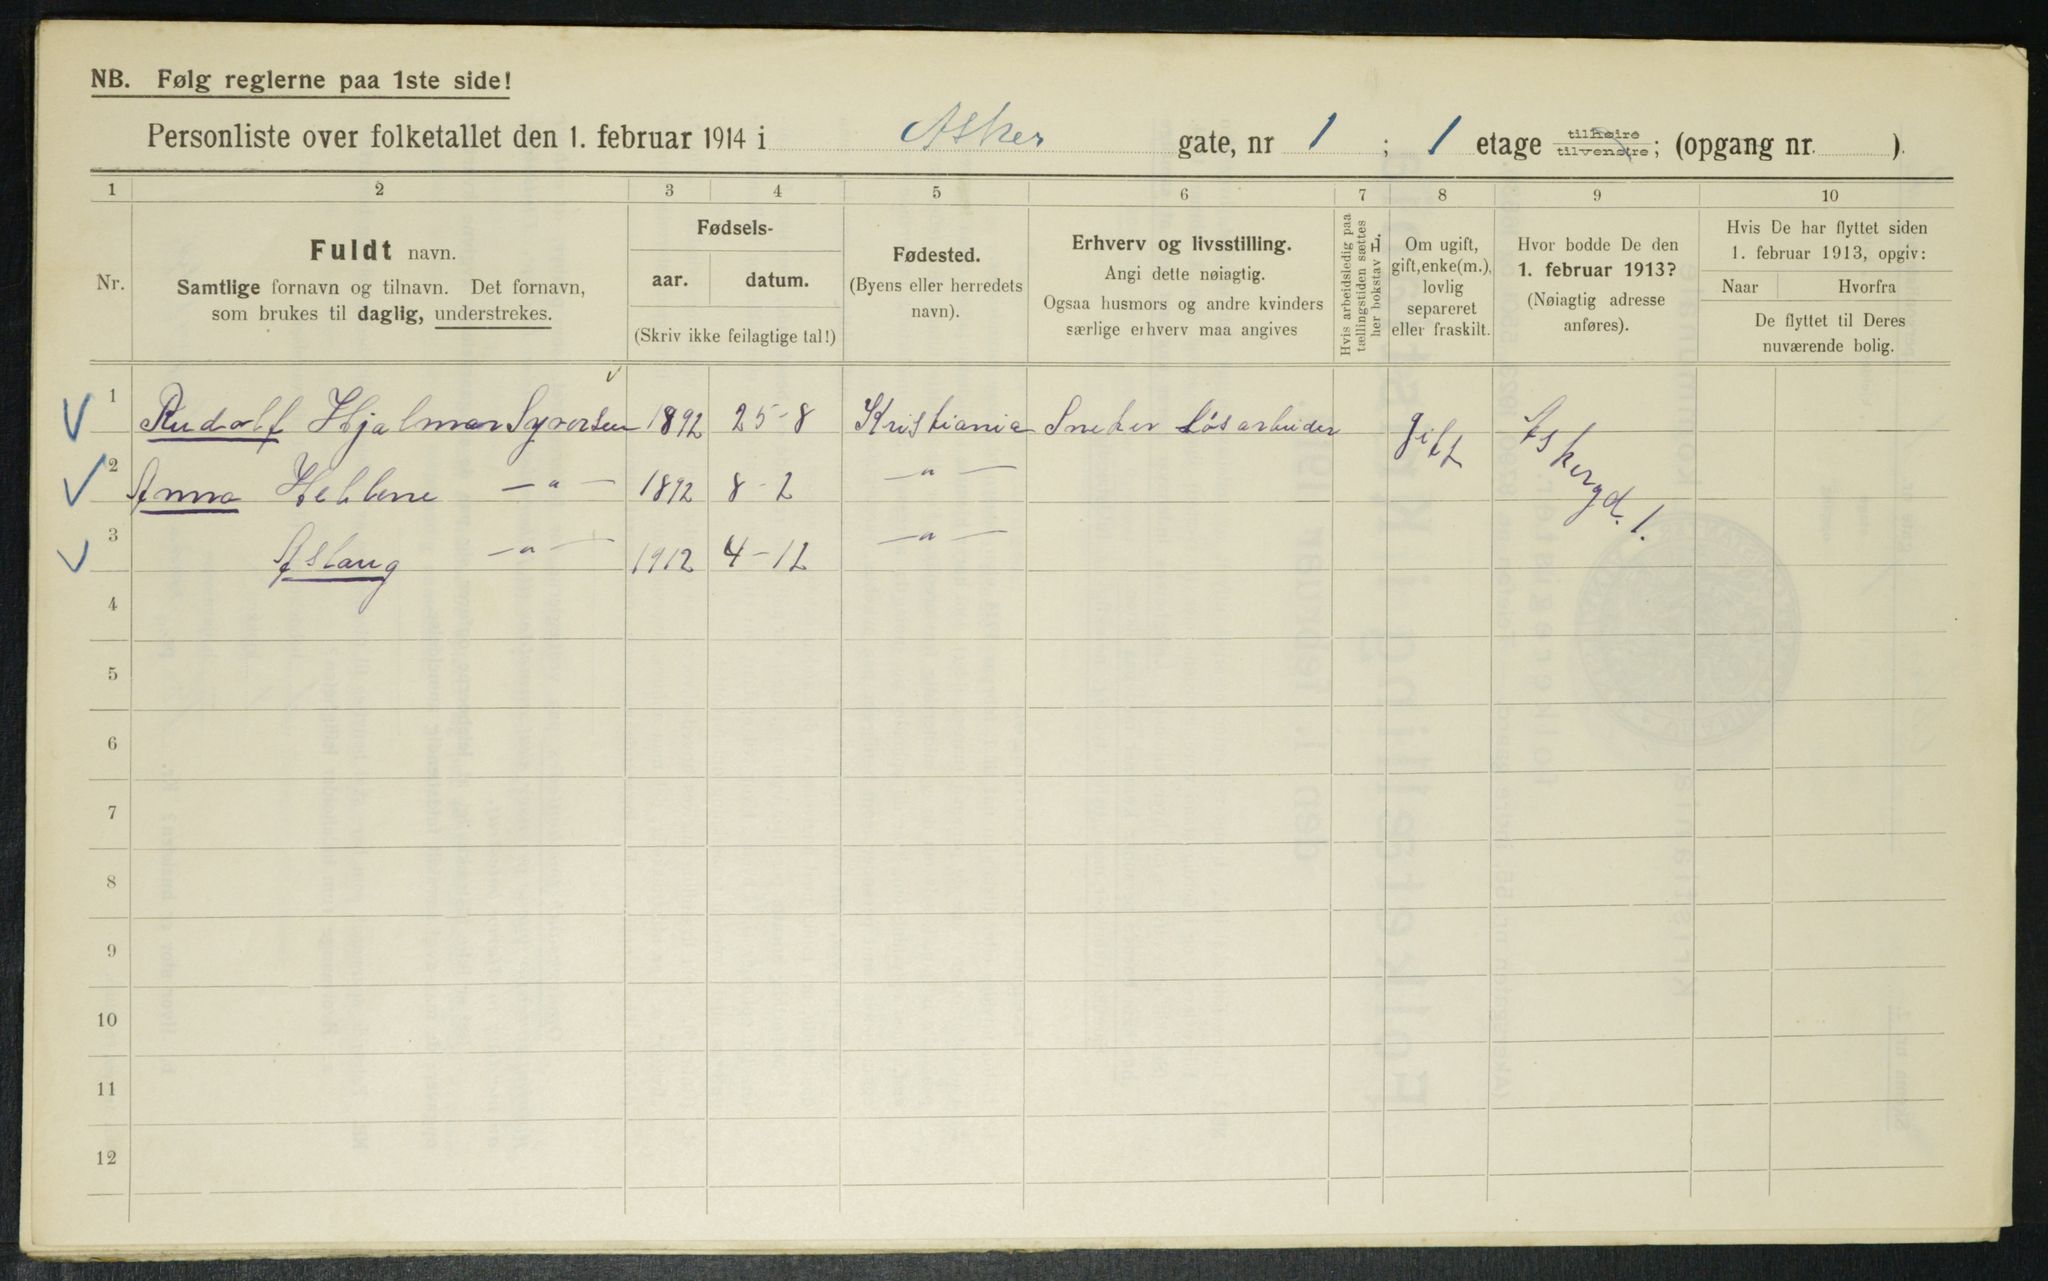 NB. Følg reglerne paa 1ste side!
Personliste over folketallet den 1. februar 1914 i Asker gate, nr 1 ; 1 etage tilhøire tilvenstre; (opgang nr. ).
1 2 3 4 5 6 7 8 9 10
Nr.
Fuldt navn.
Samtlige fornavn og tilnavn. Det fornavn,
som brukes til daglig, understrekes.
Fødsels-
aar. datum.
(Skriv ikke feilagtige tal!)
Fødested.
(Byens eller herredets
navn).
Erhverv og livsstilling.
Angi dette nøiagtig.
Ogsaa husmors og andre kvinders
særlige erhverv maa angives
Hvis arbeidsledig paa
tællingstiden sættes
her bokstav L.
Om ugift,
gift, enke(m.),
lovlig
separeret
eller fraskilt.
Hvor bodde De den
1. februar 1913?
(Nøiagtig adresse
anføres).
Hvis De har flyttet siden
1. februar 1913, opgiv:
Naar Hvorfra
De flyttet til Deres
nuværende bolig.
1 Rudolf Hjalmar Syversen 1892 25-8 Kristiania Sneker Løsarbeider gift Askergd. 1.
2 Anna Hellene —"— 1892 8-2 —"—
3 Aslaug —"— 1912 4-12 —"—
4
5
6
7
8
9
10
11
12